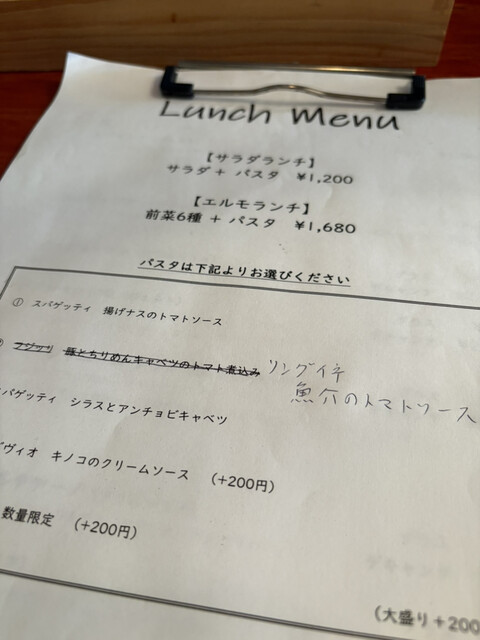 Lunch Menu
【サラダランチ】
サラダ + パスタ ¥1,200
【エルモランチ】
前菜6種 + パスタ ¥1,680
パスタは下記よりお選びください
① スパゲッティ 揚げナスのトマトソース
フジッリ 豚とちりめんキャベツのトマト煮込み リングイネ
魚介のトマトソース
パゲッティ シラスとアンチョビキャベツ
ヴィオ キノコのクリームソース (+200円)
数量限定 (+200円)
(大盛り+200